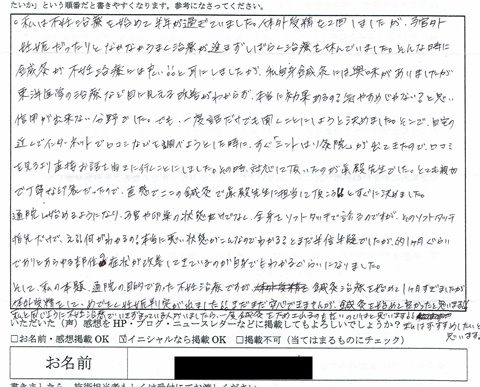 たいか」という順番だと書きやすくなります。参考になさってください。
。私は不妊治療を始めて半年が過ぎていました。体外受精を2回しましたが、子宮外
妊娠だったりとなかなかうまく治療が進まずしばらく治療を休んでいました。そんな時に
鍼灸が不妊治療には良いと耳にしましたが、私自身鍼灸には興味がありましたが
東洋医学の治療など目に見える改善がわからず、本当に効果あるの？気やすめじゃない？と思い
信用が出来ない分野でした。でも、一度話だけでも聞くことにしようと決めました。そこで、自宅の
近くでインターネットで口コミなどを調べようとした時に、すぐ「ミントはり灸院」が出てきたので、口コミ
を見るより直接お話を伺いに行くことにしました。その時対応して頂いたのが 先生でした。とても親切
で丁寧な対応だったので、直感でここの鍼灸で 先生に担当して頂こう!!とすぐに決めました。
通院し始めるようになり、子宮や卵巣の状態だけでなく、全身をソフトタッチで診るのですが、そのソフトタッチ
指先だけで、え!?何がわかるの？本当に悪い状態がこんなのでわかるの？とまだ半信半疑でしたが、約1ヶ月ぐらい
でありとあらゆる部位の症状が改善してきているのが自分でもわかるぐらいになりました。
そして、私の本題、通院の目的であった不妊治療ですが、鍼灸治療を始めて1ヶ月すぎましたが
体外受精をして、めでたく妊娠判定が出ました!!まだまだ安心できませんが、鍼灸を始めて良かったと思います!!
私と同じように不妊治療でいきづまっている人がいましたら、一度鍼灸をためされるのも良いのではと思います!!
いただいた（声）感想をHP・ブログ・ニュースレターなどに掲載してもよろしいでしょうか？
□お名前・感想掲載 OK ☑イニシャルなら掲載 OK □掲載不可（当てはまるものにチェック）
お名前